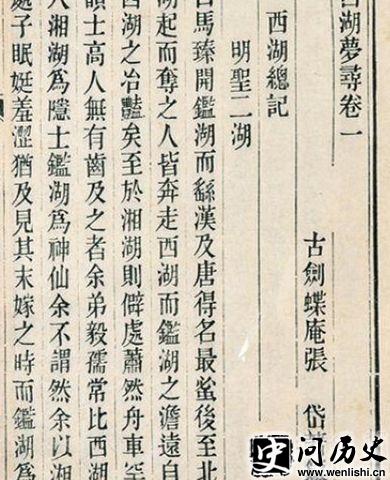 西湖夢尋卷一
古劍蝶庵張 岱
西湖總記
明聖二湖
自馬臻開鑑湖而繇漢及唐得名最蚤後至北
湖起而奪之人皆奔走西湖而鑑湖之澹遠自
西湖之冶豔矣至於湘湖則僻處蕭然舟車罕
韻士高人無有齒及之者余弟毅孺常比西湖
人湘湖為隱士鑑湖為神仙余不謂然余以湘
處子眠娗羞澀猶及見其未嫁之時而鑑湖為
史问历史
www.wenlishi.cn